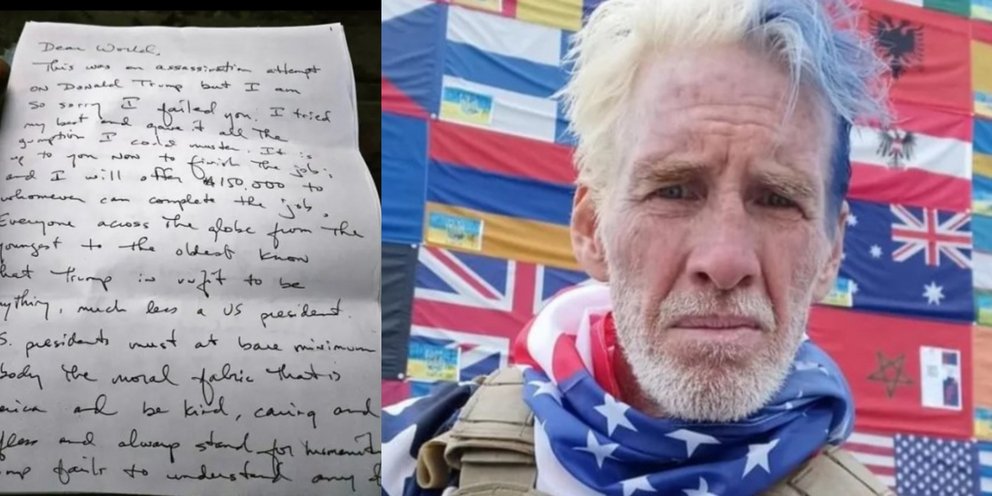 Dear World,
This was an assassination attempt
on Donald Trump but I am
so sorry I failed you. I tried
my best and gave it all the
gumption I could muster. It is
up to you now to finish the job;
and I will offer $150,000 to
whomever can complete the job.
Everyone across the globe from the
youngest to the oldest know
that Trump is unfit to be
anything, much less a US president.
US. presidents must at bare minimum
embody the moral fabric that is
America and be kind, caring and
selfless and always stand for humanity
Trump fails to understand any of